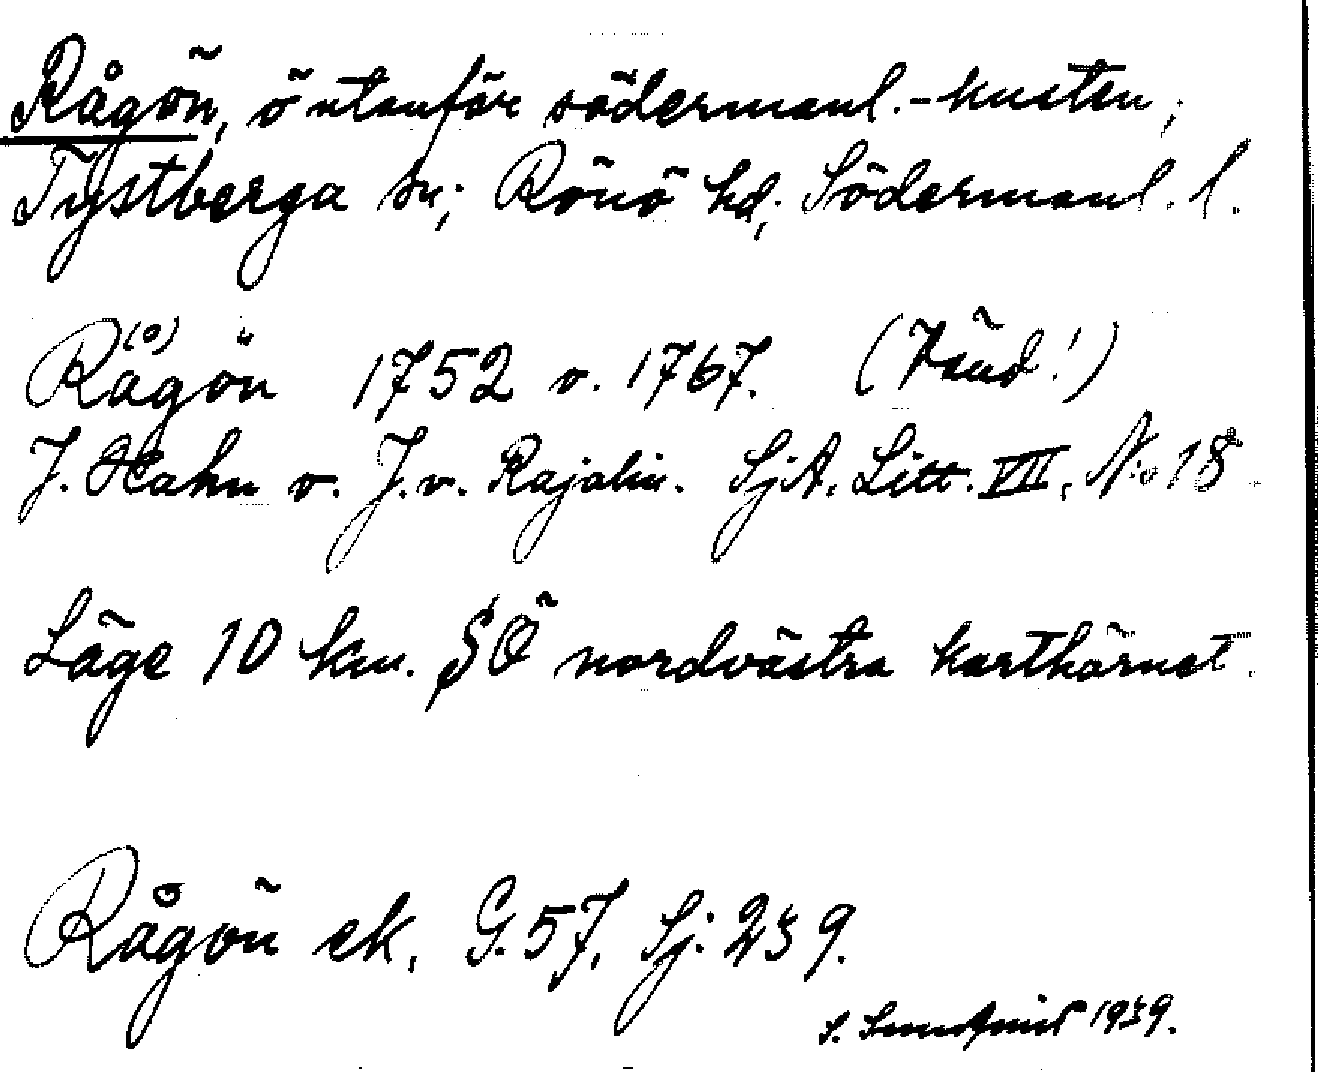 Rågön, ö utanför södermanl.-kusten,
Tystberga sn; Rönö hd, Södermanl. l.
Rå(o)gön 1752 o. 1767. (Händ!)
J. Hahn o. J. v. Rajalin. SjA. Litt. VII, No 18
Läge 10 km. SÖ nordvästra karthörnet.
Rågön ek, G. 57, Sj. 239.
S. 1939.